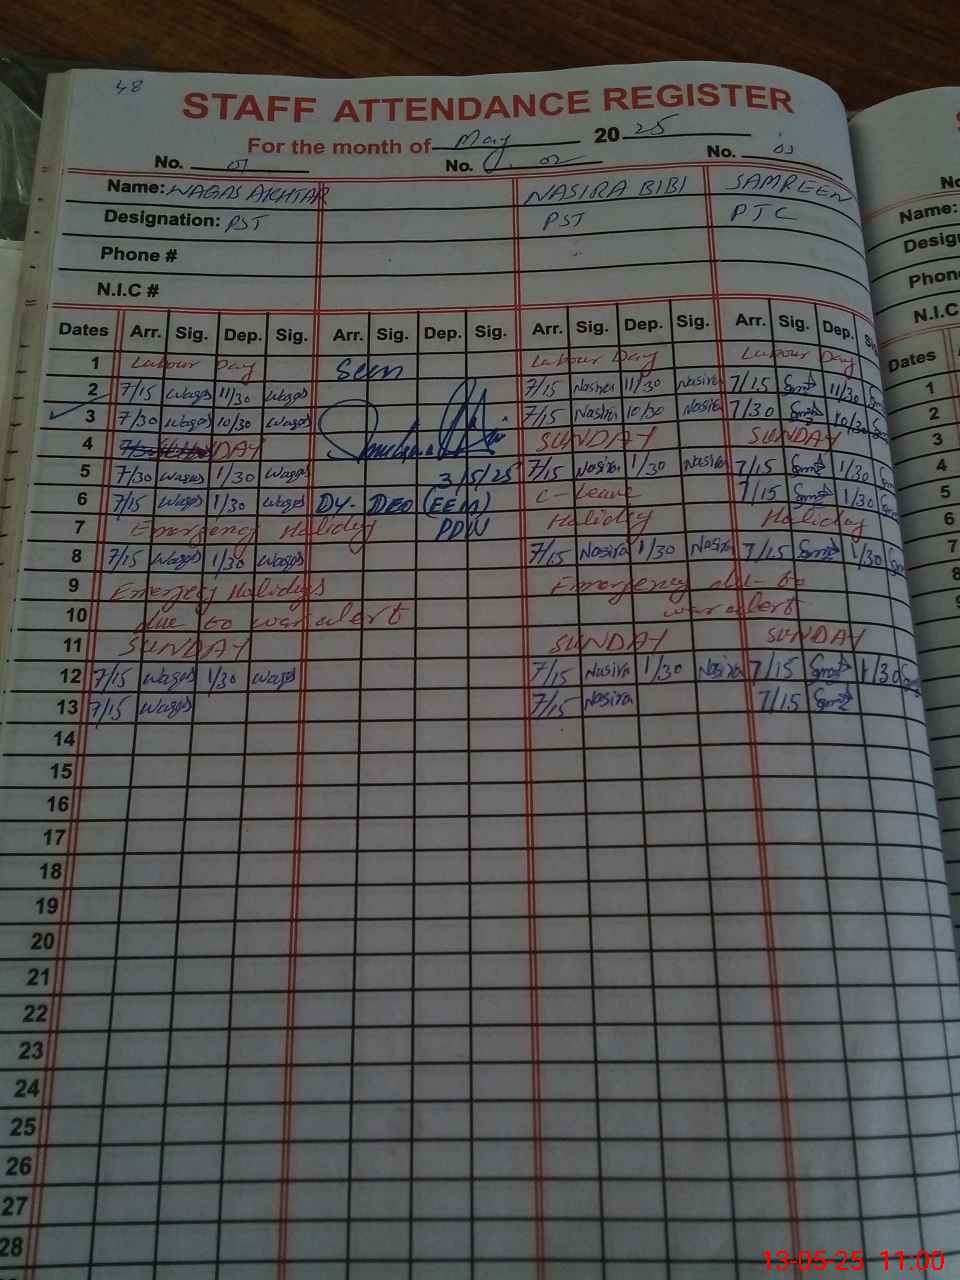 48
STAFF ATTENDANCE REGISTER
For the month of May 2025
No. 01 No. 02 No. 03
Name: WAQAS AKHTAR NASIRA BIBI SAMREEN
Designation: PST PST PTC
Phone #
N.I.C #
Dates Arr. Sig. Dep. Sig. Arr. Sig. Dep. Sig. Arr. Sig. Dep. Sig. Arr. Sig. Dep.
1 Labour Day Seen Labour Day Labour Day
2 7/15 Waqas 11/30 Waqas 7/15 Nasira 11/30 Nasira 7/15 11/30
3 7/30 Waqas 10/30 Waqas 7/15 Nasira 10/30 Nasira 7/30 10/30
4 DAY SUNDAY SUNDAY
5 7/30 Waqas 1/30 Waqas 3/5/25 7/15 Nasira 1/30 Nasira 7/15 1/30
6 7/15 Waqas 1/30 Waqas DY- DEO (EEM) C-Leave 7/15 1/30
7 Emergency Holiday PDN Holiday Holiday
8 7/15 Waqas 1/30 Waqas 7/15 Nasira 1/30 Nasira 7/15 1/30
9 Emergecy Holidays Emergency due to
10 due to war alert war alert
11 SUNDAY SUNDAY SUNDAY
12 7/15 Waqas 1/30 Waqas 7/15 Nasira 1/30 Nasira 7/15 1/30
13 7/15 Waqas 7/15 Nasira 7/15
14
15
16
17
18
19
20
21
22
23
24
25
26
27
28
No
Name:
Design
Phone
N.I.C
Dates
1
2
3
4
5
6
7
8
9
13-05-25 11:00